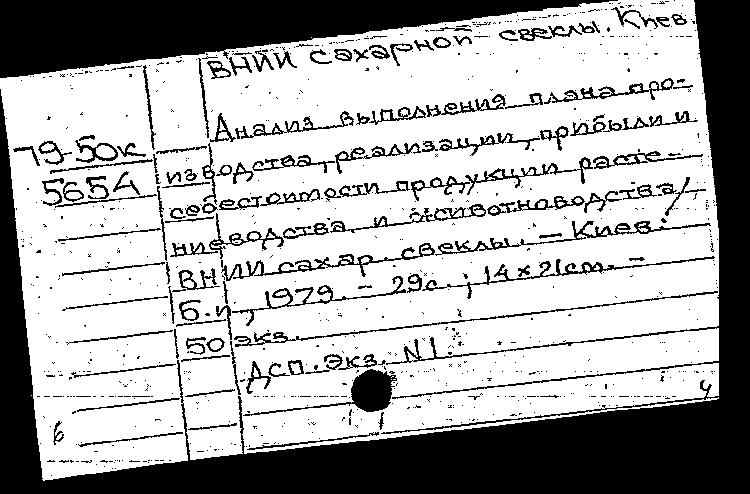 ВНИИ сахарной свеклы. Киев.
Анализ выполнения плана про-
79-50к
изводства, реализации, прибыли и
5654
себестоимости продукции расте-
ниеводства и животноводства/
ВНИИ сахар. свеклы. – Киев:
Б.и, 1979. – 29с.; 14×21см. –
50 экз.
Дсп. Экз. N1.
б
ч